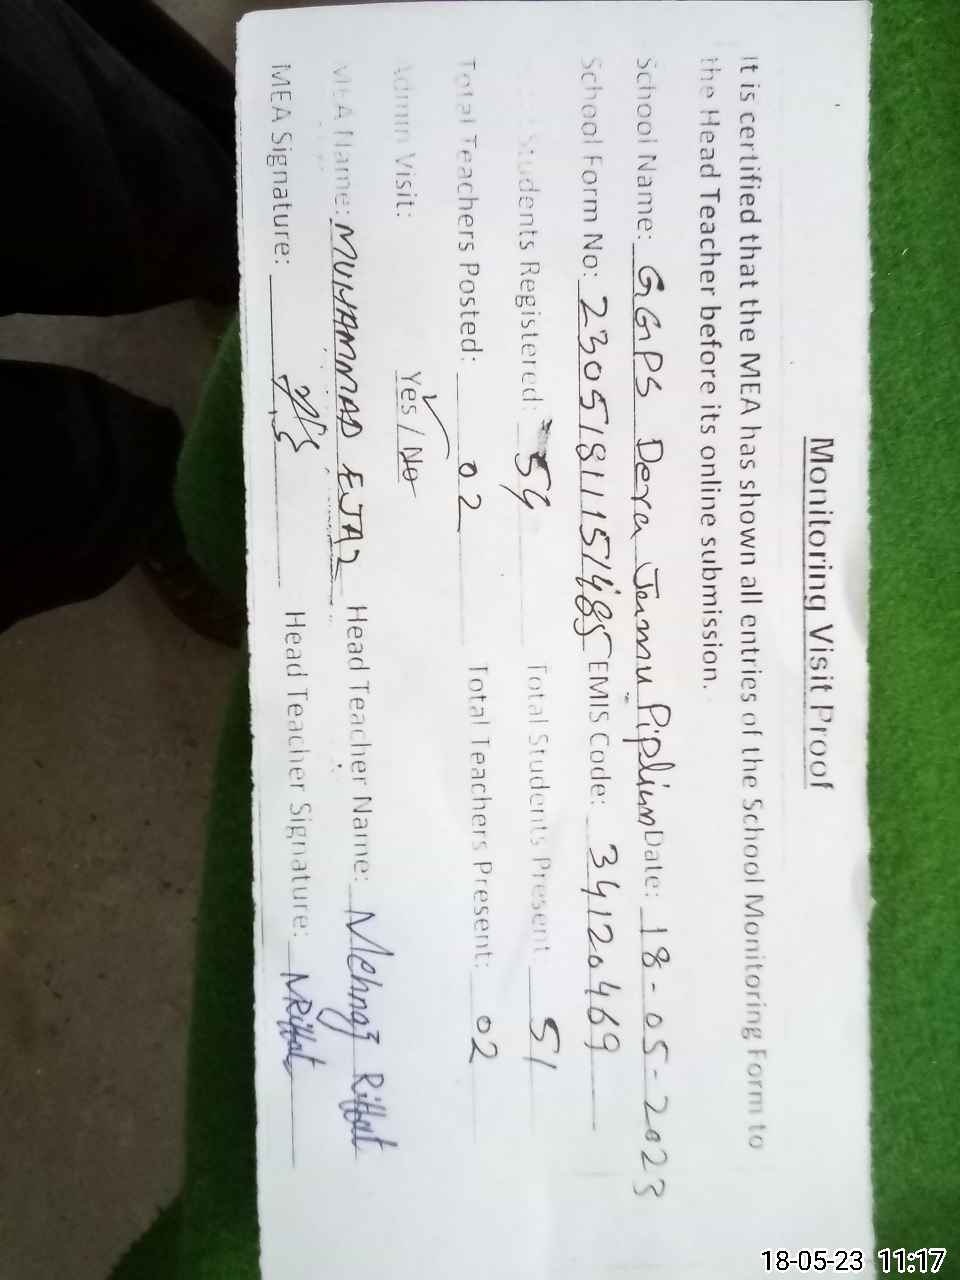 Monitoring Visit Proof
It is certified that the MEA has shown all entries of the School Monitoring Form to
the Head Teacher before its online submission.
School Name: GGPS Dera Jammu Piplium Date: 18-05-2023
School Form No: 23051811151485 EMIS Code: 34120469
Students Registered: 59 Total Students Present: 51
Total Teachers Posted: 02 Total Teachers Present: 02
Admin Visit: Yes / No
MEA Name: MUHAMMAD EJAZ Head Teacher Name: Mehnaz Riffat
MEA Signature: Head Teacher Signature: MRiffat
18-05-23 11:17